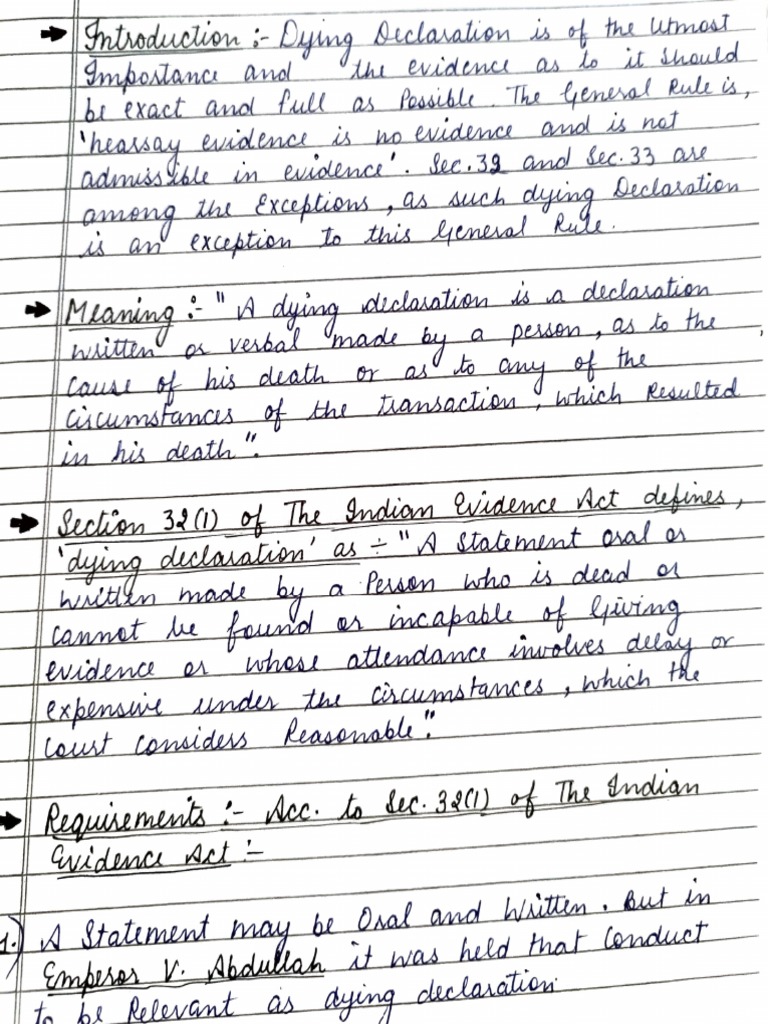 → Introduction :- Dying Declaration is of the Utmost
Importance and the evidence as to it should
be exact and full as Possible. The General Rule is,
'hearsay evidence is no evidence and is not
admissible in evidence'. Sec.32 and Sec.33 are
among the Exceptions, as such dying Declaration
is an exception to this General Rule.
→ Meaning :- "A dying declaration is a declaration
written or verbal made by a person, as to the
cause of his death or as to any of the
circumstances of the transaction, which Resulted
in his death".
→ Section 32(1) of The Indian Evidence Act defines,
'dying declaration' as :- "A Statement oral or
written made by a Person who is dead or
cannot be found or incapable of Giving
evidence or whose attendance involves delay or
expensive under the circumstances, which the
Court Considers Reasonable".
→ Requirements :- Acc. to Sec.32(1) of The Indian
Evidence Act :-
1.) A Statement may be Oral and Written. But in
Emperor V. Abdullah it was held that Conduct
to be Relevant as dying declaration.